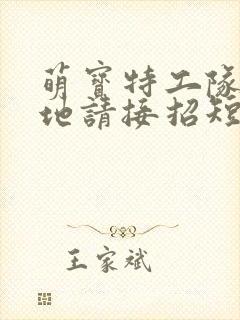 萌寶特工隊
地請接招短
王家斌